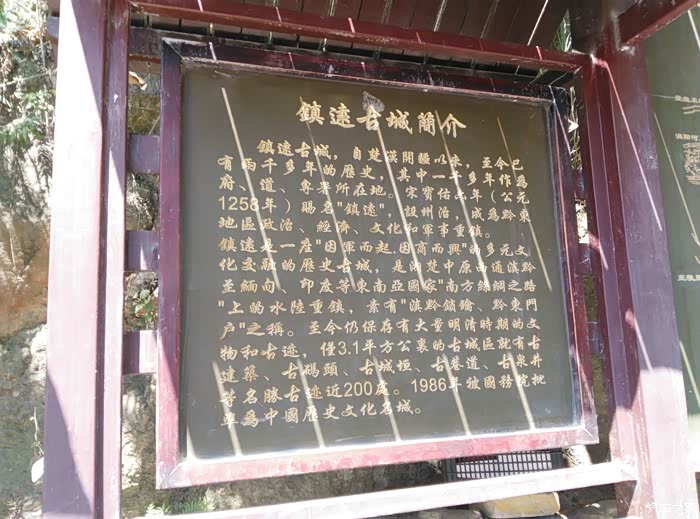 鎮遠古城簡介
鎮遠古城，自楚漢開疆以來，至今已
有兩千多年的歷史，其中一千多年作爲
府、道、專署所在地。宋寶佑六年（公元
1258年）賜名"鎮遠"，設州治，成爲黔東
地區政治、經濟、文化和軍事重鎮。
鎮遠是一座"因軍而起，因商而興"的多元文
化交融的歷史古城，是湘楚中原西通滇黔
至緬甸、印度等東南亞國家"南方絲綢之路
"上的水陸重鎮，素有"滇黔鎖鑰、黔東門
户"之稱。至今仍保存有大量明清時期的文
物和古迹，僅3.1平方公裏的古城區就有古
建築、古碼頭、古城垣、古巷道、古泉井
等名勝古迹近200處。1986年被國務院批
準爲中國歷史文化名城。